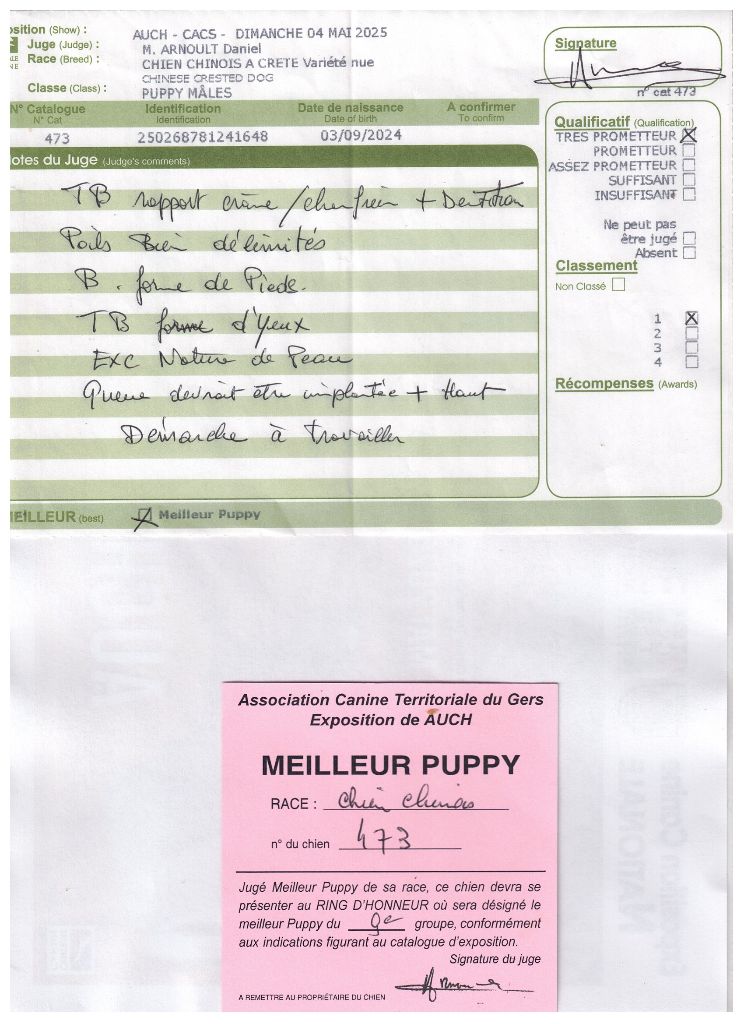 osition (Show) : AUCH - CACS - DIMANCHE 04 MAI 2025
Juge (Judge) : M. ARNOULT Daniel
Race (Breed) : CHIEN CHINOIS A CRETE Variété nue
CHINESE CRESTED DOG
Classe (Class) : PUPPY MÂLES
Signature
n° cat 473
N° Catalogue Identification Date de naissance A confirmer
N° Cat Identification Date of birth To confirm
473 250268781241648 03/09/2024
otes du Juge (Judge's comments)
TB rapport crâne / chanfrein + Dentition
Poils Bien délimités
B. forme de Pieds.
TB forme d'Yeux
Exc Nature de Peau
Queue devrait être implantée + Haut
Démarche à travailler
Qualificatif (Qualification)
TRES PROMETTEUR
PROMETTEUR
ASSEZ PROMETTEUR
SUFFISANT
INSUFFISANT
Ne peut pas
être jugé
Absent
Classement
Non Classé
1
2
3
4
Récompenses (Awards)
EILLEUR (best) Meilleur Puppy
Association Canine Territoriale du Gers
Exposition de AUCH
MEILLEUR PUPPY
RACE : Chien Chinois
n° du chien 473
Jugé Meilleur Puppy de sa race, ce chien devra se
présenter au RING D'HONNEUR où sera désigné le
meilleur Puppy du 9e groupe, conformément
aux indications figurant au catalogue d'exposition.
Signature du juge
A REMETTRE AU PROPRIÉTAIRE DU CHIEN